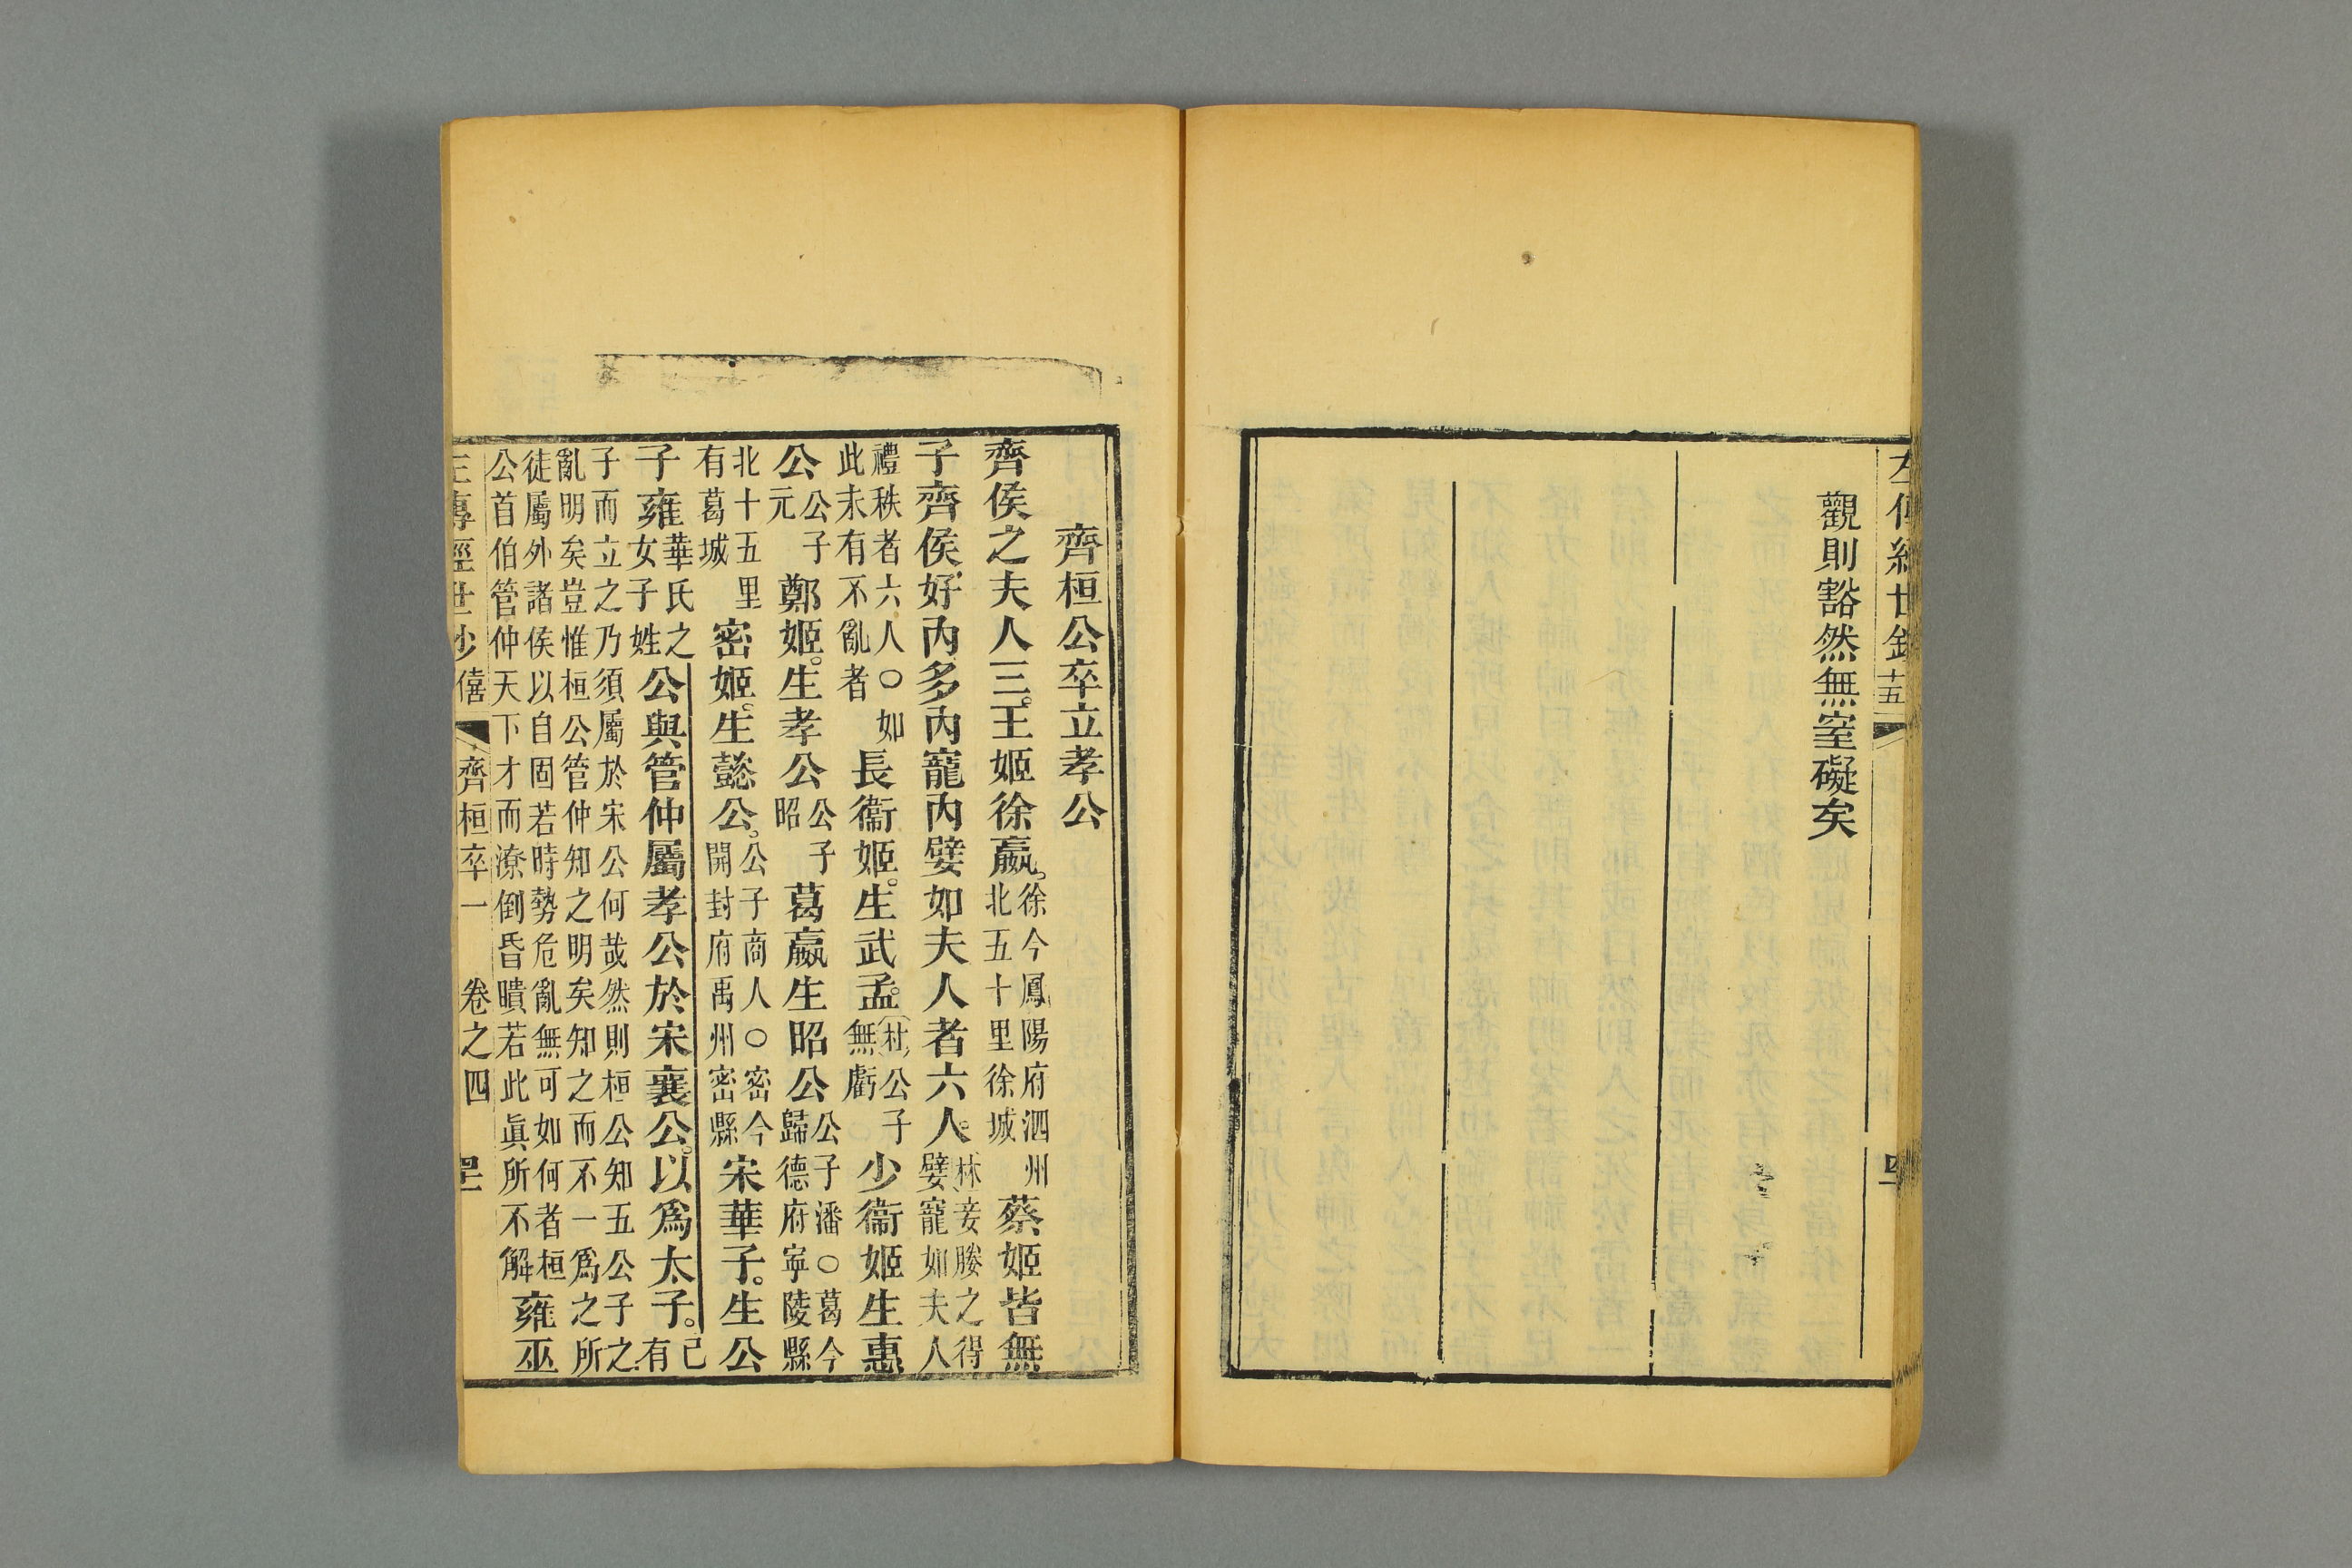 觀則豁然無窒礙矣
齊桓公卒立孝公
齊侯之夫人三。王姬徐嬴。徐今鳳陽府泗州北五十里徐城蔡姬皆無
子齊侯好內多內寵內嬖如夫人者六人。林妾媵之得嬖寵如夫人
禮秩者六人○如此未有不亂者長衞姬。生武孟。杜公子無虧少衞姬生惠
公公子元鄭姬。生孝公公子昭葛嬴生昭公公子潘○葛今歸德府寧陵縣
北十五里有葛城密姬。生懿公。公子商人○密今開封府禹州密縣宋華子。生公
子雍華氏之女子姓公與管仲屬孝公於宋襄公。以爲太子。己有
子而立之乃須屬於宋公何哉然則桓公知五公子之
亂明矣豈惟桓公管仲知之明矣知之而不一爲之所
徒屬外諸侯以自固若時勢危亂無可如何者桓
公首伯管仲天下才而潦倒昏瞶若此眞所不解雍巫
齊桓卒一 卷之四